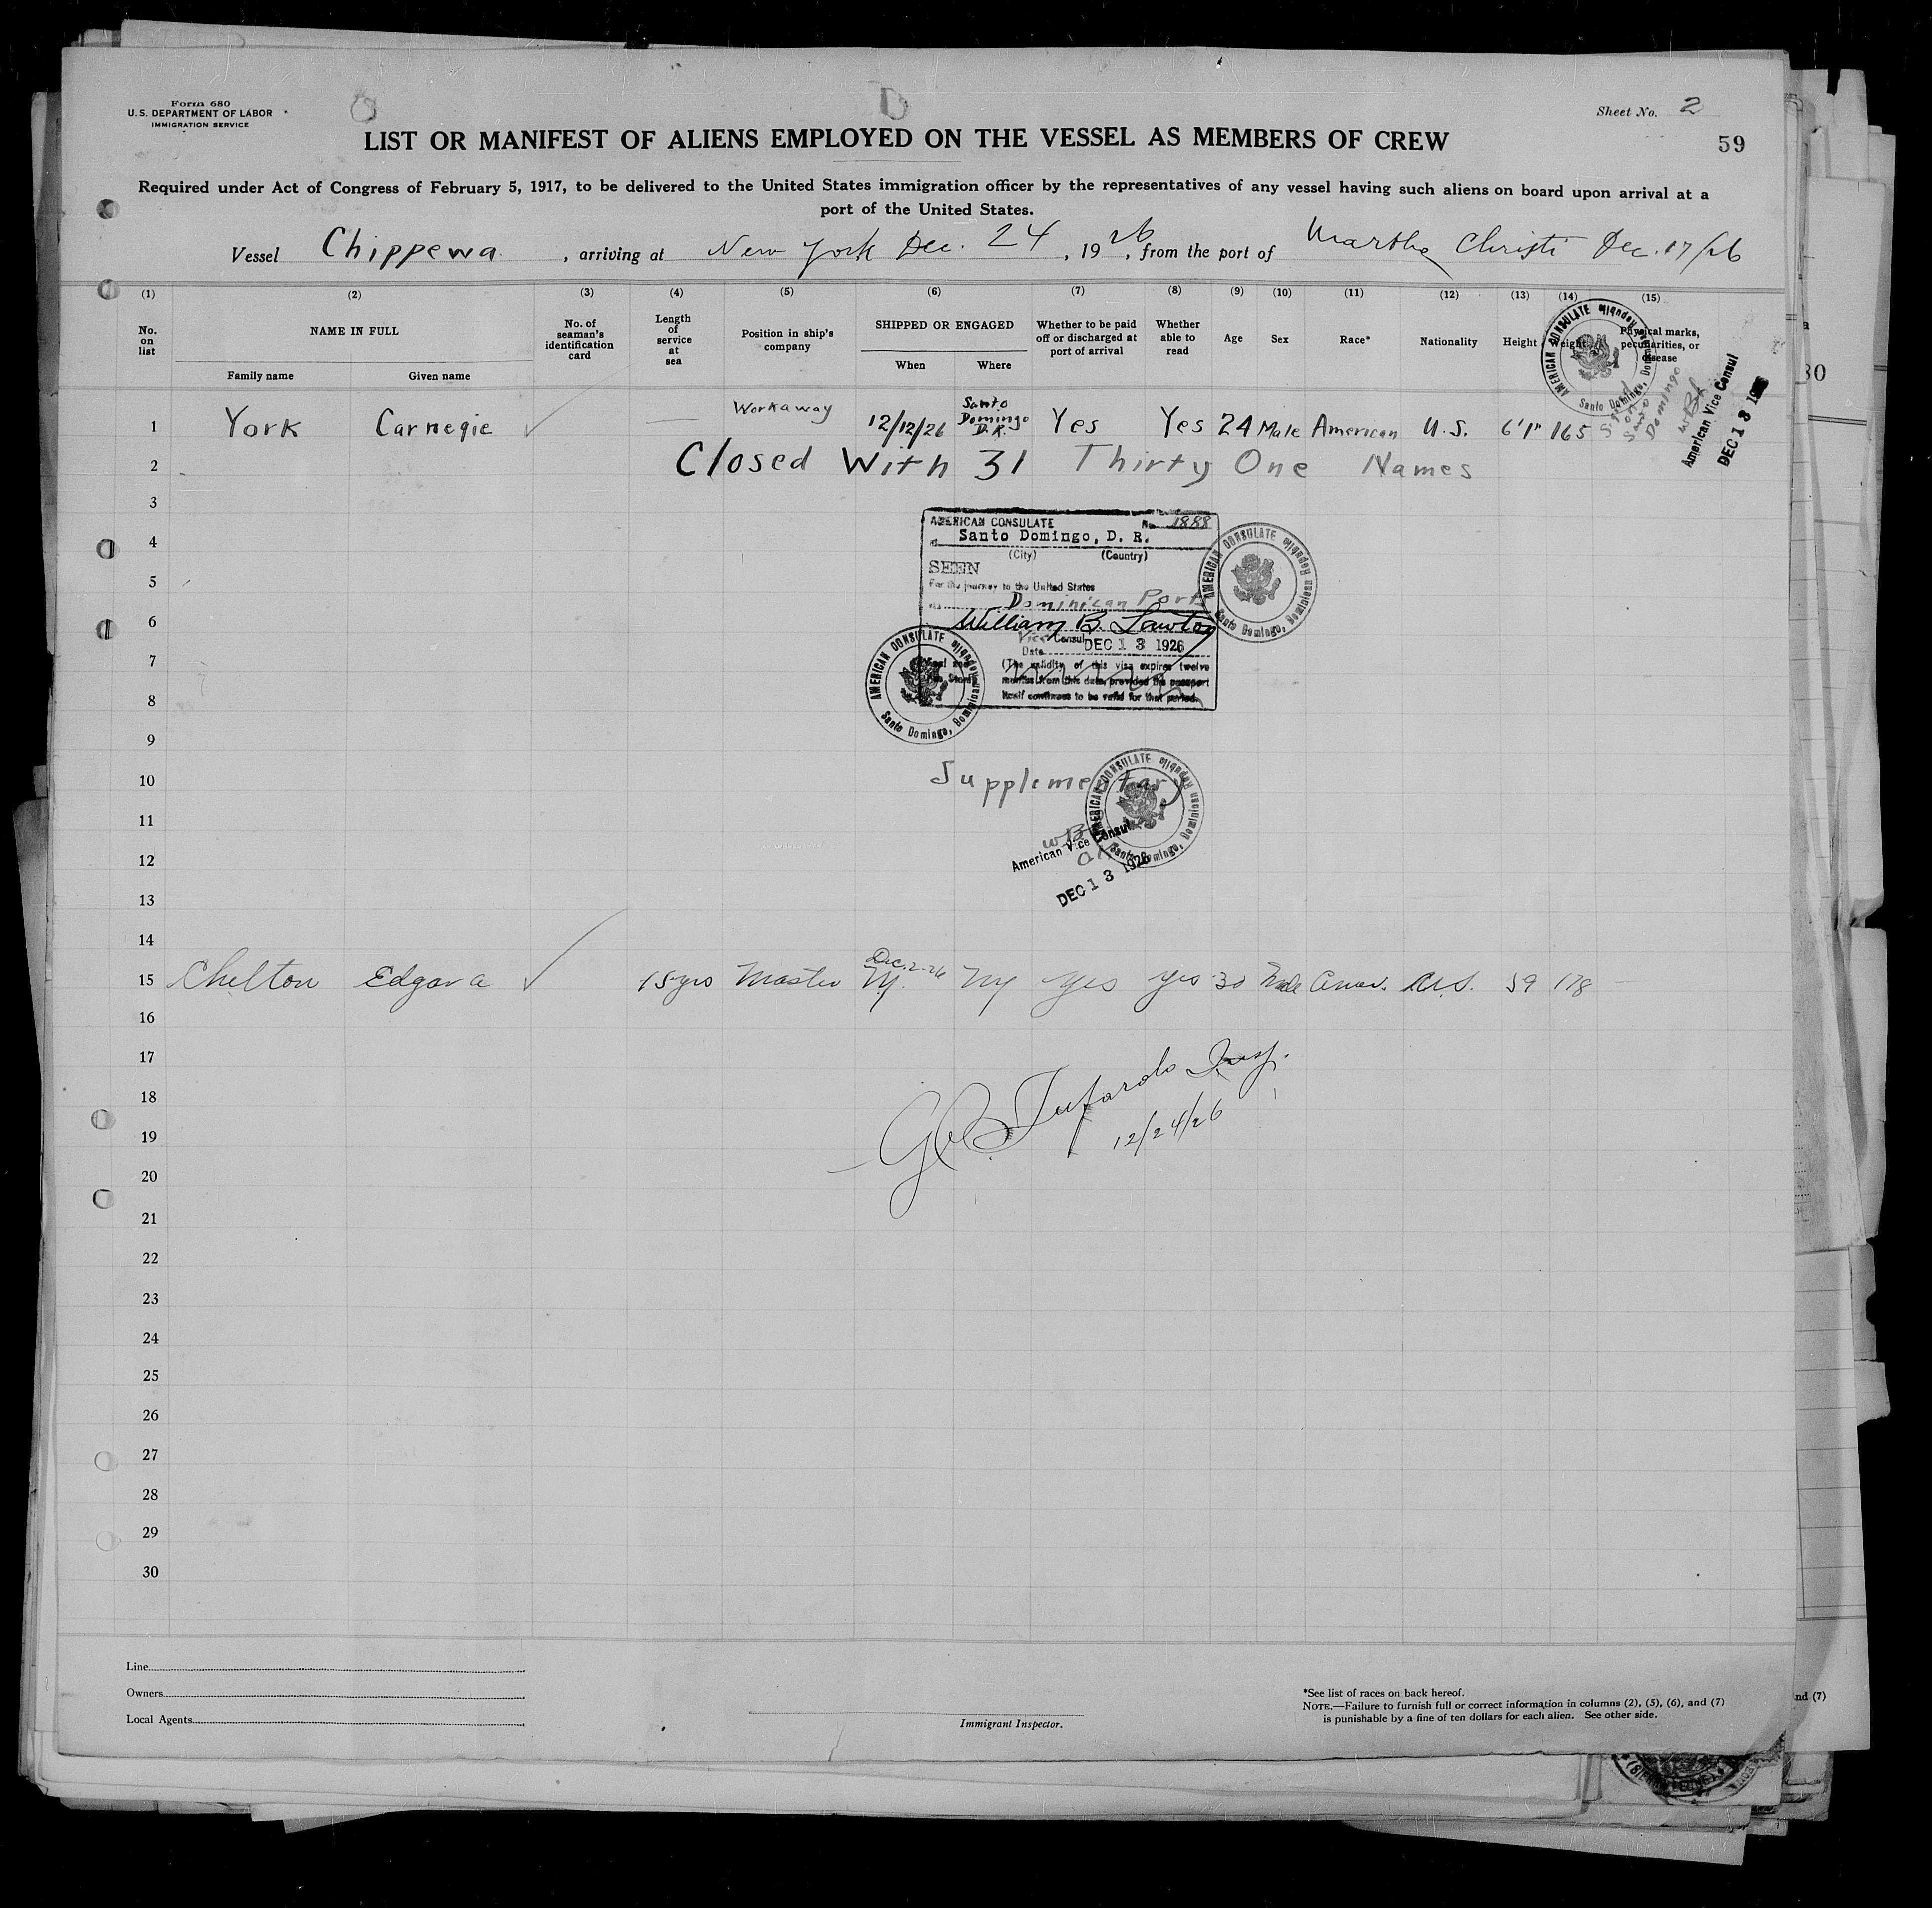 Form 680
U.S. DEPARTMENT OF LABOR
IMMIGRATION SERVICE
Sheet No. 2
59
LIST OR MANIFEST OF ALIENS EMPLOYED ON THE VESSEL AS MEMBERS OF CREW
Required under Act of Congress of February 5, 1917, to be delivered to the United States immigration officer by the representatives of any vessel having such aliens on board upon arrival at a
port of the United States.
Vessel Chippewa, arriving at New York Dec. 24, 1926, from the port of Marthe Christi Dec. 17/26
(1) (2) (3) (4) (5) (6) (7) (8) (9) (10) (11) (12) (13) (14) (15)
No. on list
NAME IN FULL
Family name Given name
No. of seaman's identification card
Length of service at sea
Position in ship's company
SHIPPED OR ENGAGED
When Where
Whether to be paid off or discharged at port of arrival
Whether able to read
Age
Sex
Race*
Nationality
Height
Weight
Physical marks, peculiarities, or disease
AMERICAN CONSULATE
Santo Domingo, Dominican Republic
1 York Carnegie — Workaway 12/12/26 Santo Domingo D.R. Yes Yes 24 Male American U.S. 6'1" 165
Signed on Santo Domingo
American Vice Consul
DEC 13
2 Closed With 31 Thirty One Names
3
AMERICAN CONSULATE No. 1888
at Santo Domingo, D. R.
4
(City) (Country)
SEEN
5
For the journey to the United States
via Dominican Port
6
William B. Lawton
Vice Consul
Date DEC 13 1926
AMERICAN CONSULATE
Santo Domingo, Dominican Republic
7
(The validity of this visa expires twelve
months from this date, provided the passport
itself continues to be valid for that period.
AMERICAN CONSULATE
Santo Domingo, Dominican Republic
8
9
10 Supplementary
AMERICAN CONSULATE
Santo Domingo, Dominican Republic
11
12
American Vice Consul
DEC 13 1926
13
14
15 Chelton Edgar a 15 yrs Master Dec. 2-26 N.Y. Ny yes yes 30 Male Amer. U.S. 59 178
16
17
18
12/24/26
19
20
21
22
23
24
25
26
27
28
29
30
Line
Owners
Local Agents
Immigrant Inspector.
*See list of races on back hereof.
NOTE.—Failure to furnish full or correct information in columns (2), (5), (6), and (7)
is punishable by a fine of ten dollars for each alien. See other side.
nd (7)